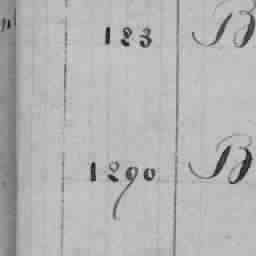 123 B
1290 B